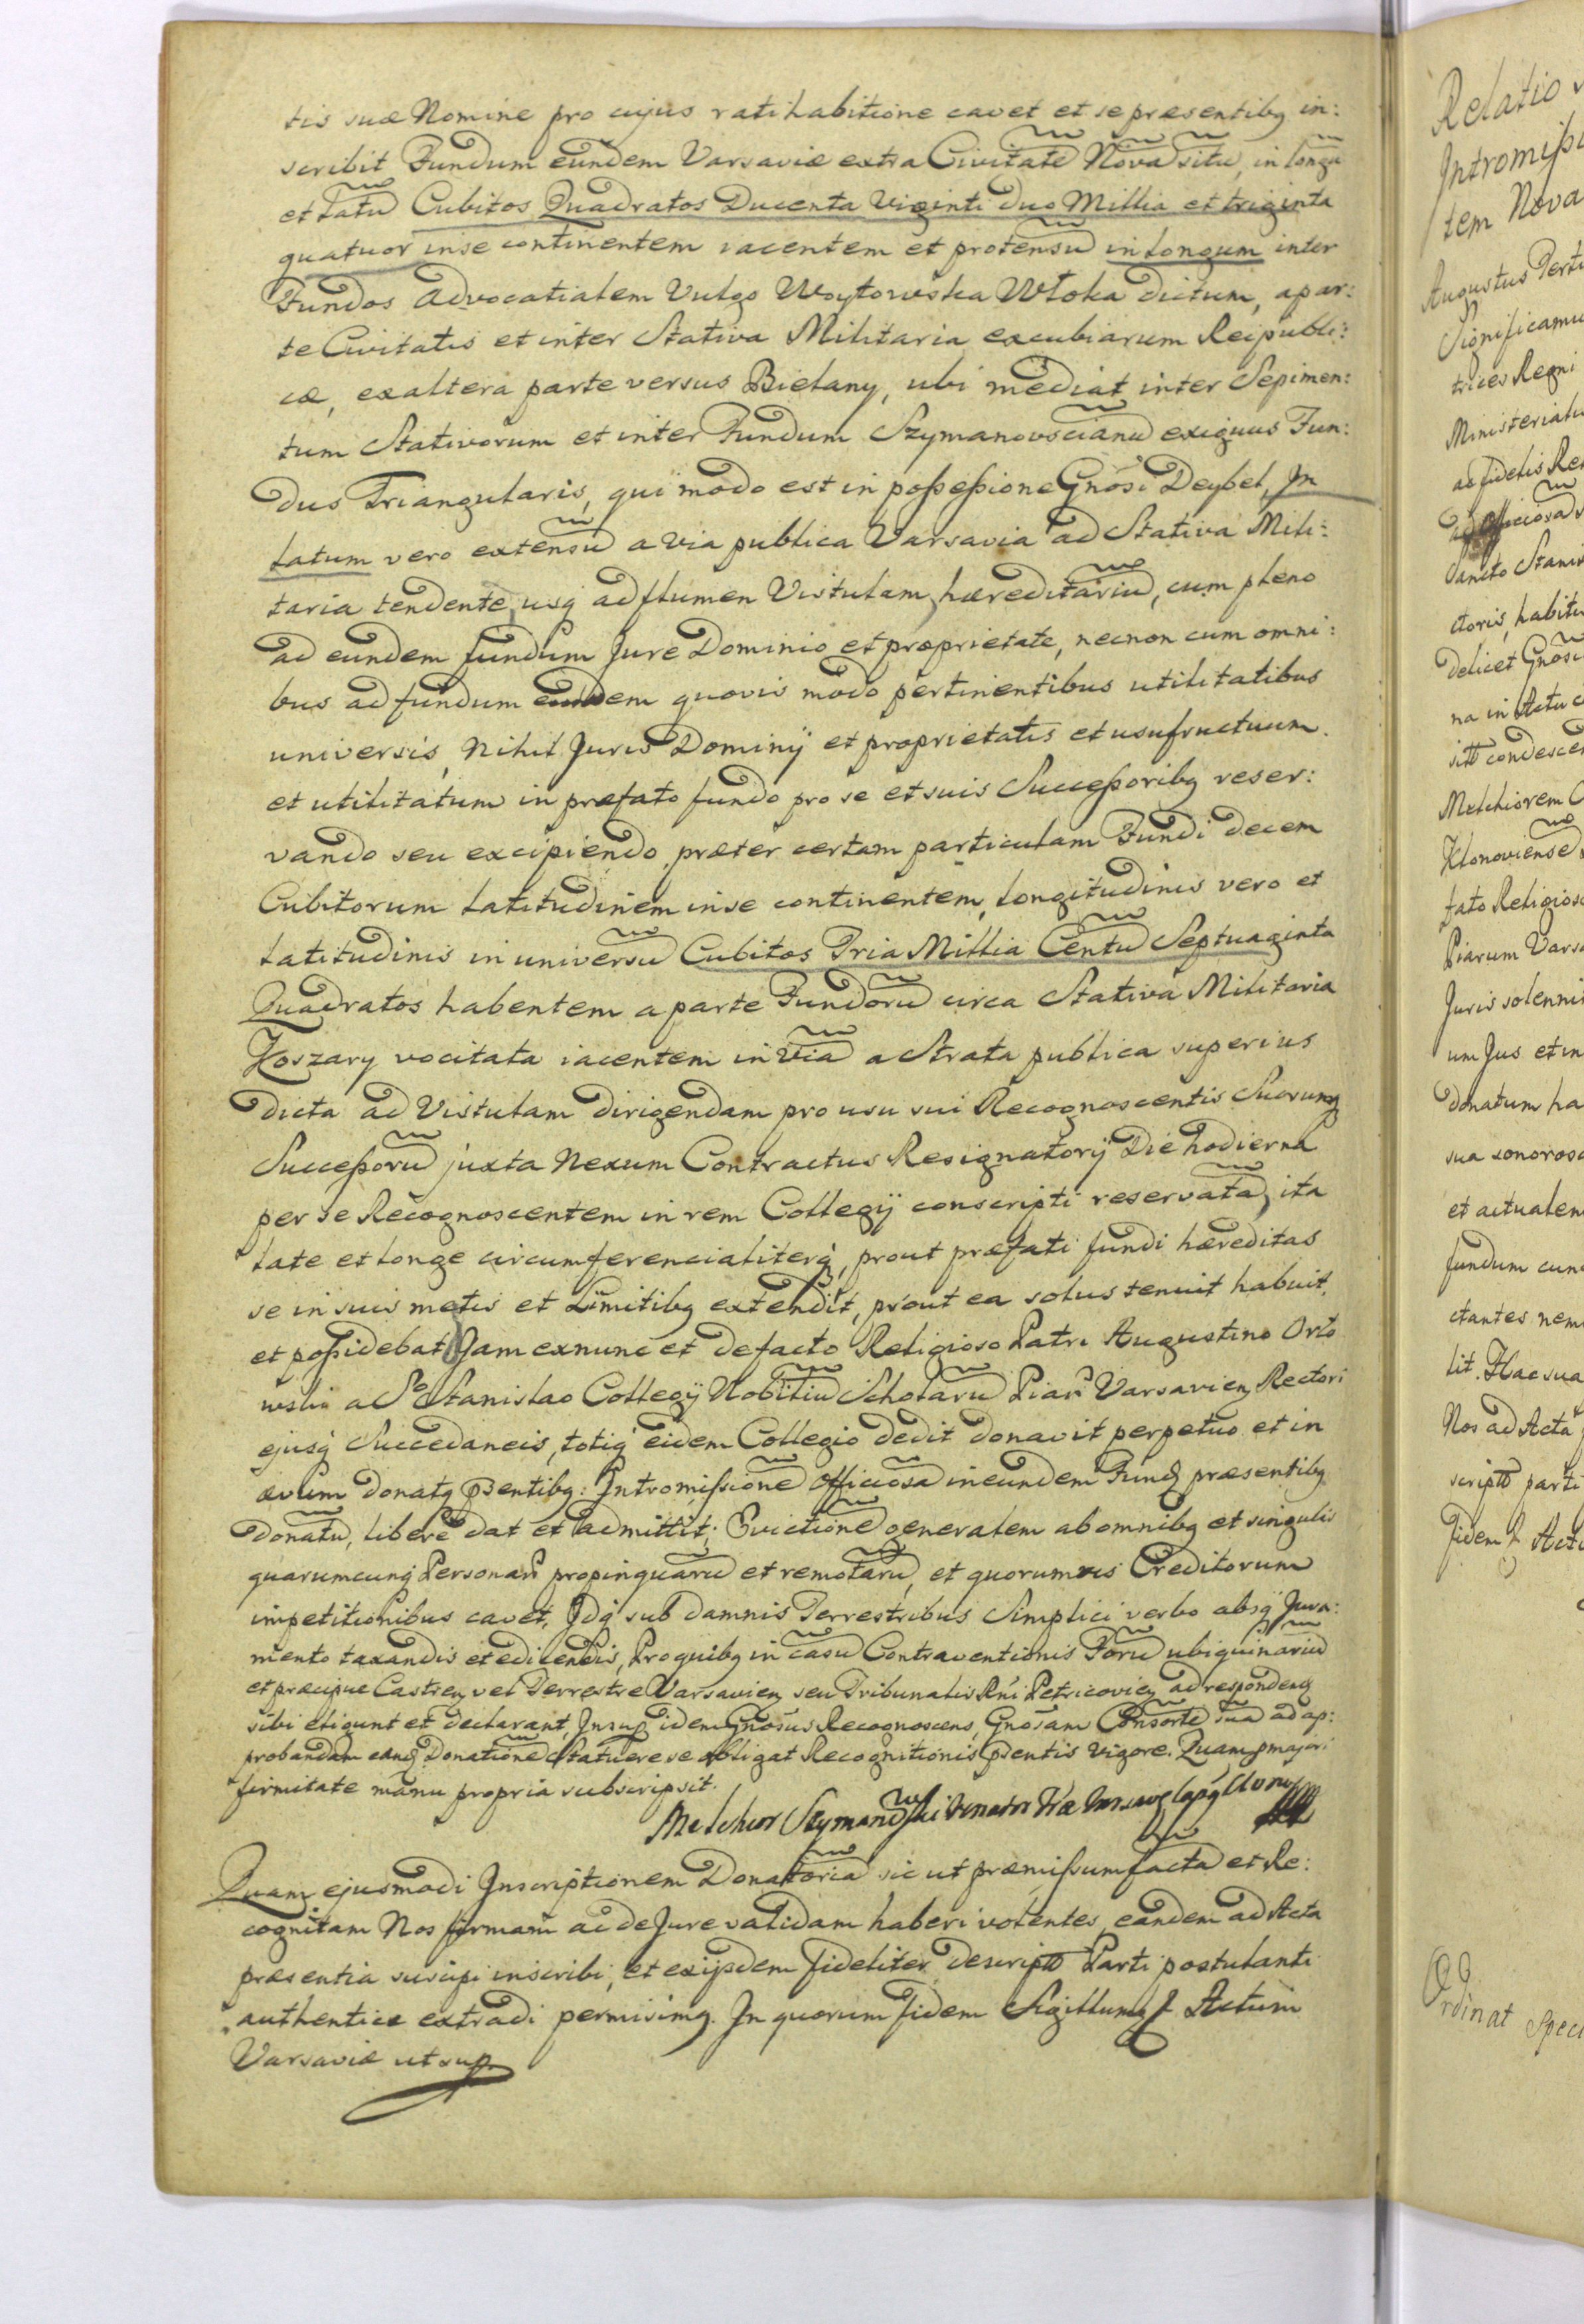 tis suæ Nomine pro cujus ratihabitione cavet et se præsentibꝫ in:
scribit Fundum eundem Varsaviæ extra Civitate Nova situ, in longu
et latu Cubitos Quadratos Ducenta Viginti duo Millia et triginta
quatuor in se continentem iacentem et protensu in longum inter
Fundos Advocatialem Vulgo Woytowska Włoka dictum, a par:
te Civitatis et inter Stativa Militaria excubiarum Reipubli:
cæ, ex altera parte versus Bielany, ubi mediat inter Sepimen:
tum Stativorum et inter Fundum Szymanovscianu exiguus Fun:
dus Triangularis, qui modo est in possessione Gnosi Deybel, In
latum vero extensu a via publica Varsavia ad Stativa Mili:
taria tendente, usq ad flumen Vistulam, hæreditariu, cum pleno
ad eundem fundum Jure Dominio et proprietate, necnon cum omni:
bus ad fundum eundem quovis modo pertinentibus utilitatibus
universis, Nihil Juris Dominij et proprietatis et usufructuum
et utilitatum in præfato fundo pro se et suis Successoribꝫ reser:
vando seu excipiendo, præter certam particulam Fundi decem
Cubitorum latitudinem in se continentem, longitudinis vero et
latitudinis in universu Cubitos Tria Millia Centu Septuaginta
Quadratos habentem a parte Fundoru circa Stativa Militaria
Koszary vocitata iacentem in via a Strata publica superius
dicta ad Vistulam dirigendam pro usu sui Recognoscentis Suorumq
Successoru juxta Nexum Contractus Resignatorij Die hodierna
per se Recognoscentem in rem Collegij conscripti reservata, ita
late et longe circumferencialiterq, prout præfati fundi hæreditas
se in suis metis et Limitibꝫ extendit, prout ea solus tenuit habuit
et possidebat Jam exnunc et de facto Religioso Patri Augustino Orło
wski a So Stanislao Collegij Nobiliu Scholaru Piar Varsavien Rectori
ejusq Succedaneis, totiq eidem Collegio dedit donavit perpetuo et in
ævum donatq psentibꝫ: Intromissione officiosa in eundem Fund præsentibꝫ
donatu, libere dat et admittit; Evictione generalem ab omnibꝫ et singulis
quarumcunq Personar propinquaru et remotaru, et quorumvis Creditorum
impetitionibus cavet, Idq sub damnis Terrestribus Simplici verbo absq Jura:
mento taxandis et edicendis, Pro quibꝫ in casu Contraventionis Foru ubiquinariu
et præcipue Castren vel Terrestre Varsavien seu Tribunalis Rni Petricovien ad responden
sibi eligunt et declarant, Insup idem Gnosus Recognoscens, Gnosam Consorte sua ad ap:
probandam eand Donatione Statuere se obligat Recognitionis psentis vigore. Quam p majori
firmitate manu propria subscripsit.
Melchior Szymanowski Venator Træ Varsav
Quam ejusmodi Inscriptionem Donatoria sic ut præmissum facta et Re:
cognitam Nos firmam ac de Jure validam haberi volentes, eandem ad Acta
præsentia suscipi inscribi, et ex ijsdem fideliter descripto Parti postulanti
authentice extradi permisimꝫ. In quorum fidem Sigillum Actum
Varsaviæ ut sup
Relatio
Intromissi
tem Nova
Augustus Terti
Significamu
trices Regni
Ministerialis
ac fidelis Re
Sancto Stanis
ctoris, habitu
delicet Gnosi
na in Actu
sitt condescen
Melchiorem
Klonoviense
fato Religioso
Piarum Varsa
Juris solenni
um Jus et in
donatum ha
sua sonoros
et actualem
fundum cum
ctantes nem
lit. Hac sua
Nos ad Acta
scripto parti
fidem Actu
Ordinat Speci